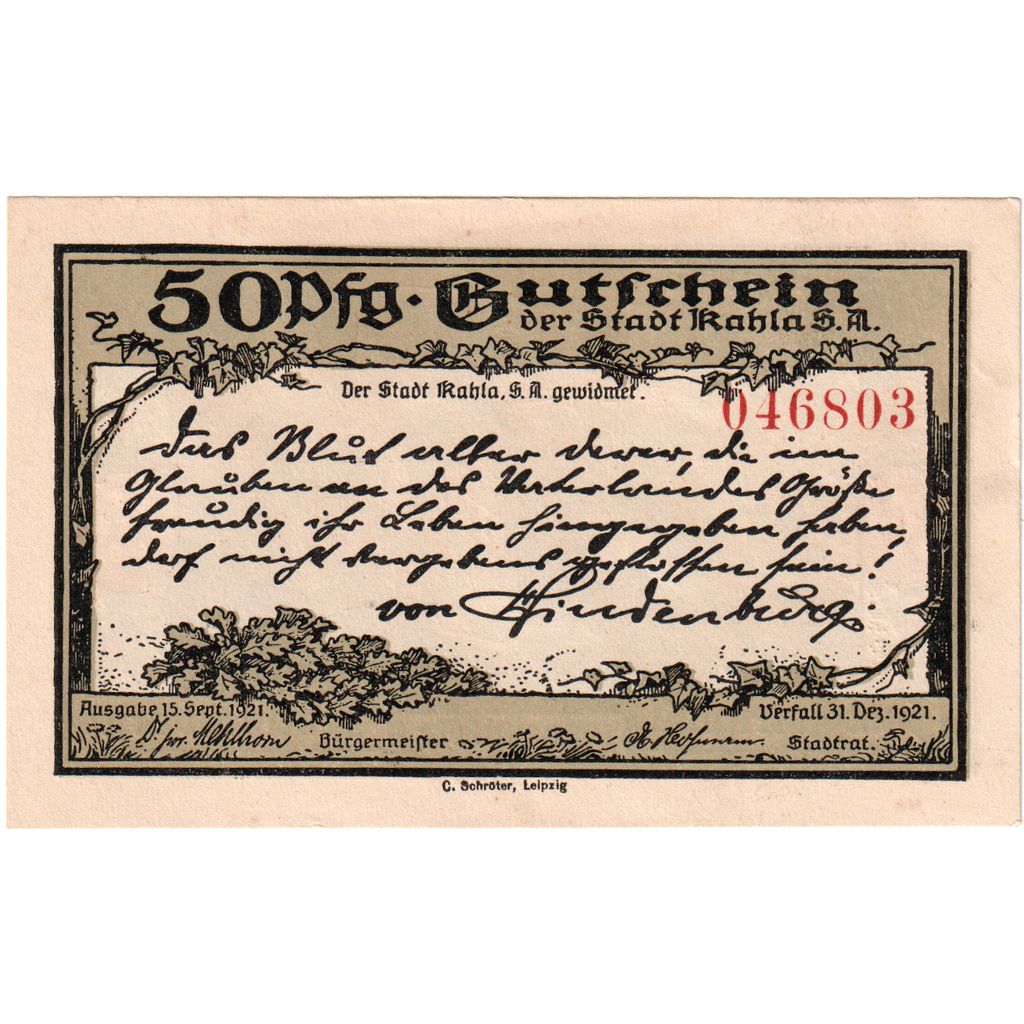 50 Pfg. Gutschein
der Stadt Kahla S.A.
Der Stadt Kahla, S.A. gewidmet.
046803
Das Blut aller derer, die im
Glauben an des Vaterlandes Größe
freudig ihr Leben hingegeben haben,
darf nicht vergebens geflossen sein!
von Hindenburg.
Ausgabe 15. Sept. 1921.
Verfall 31. Dez. 1921.
Dr jur. Mehlhorn Bürgermeister
Stadtrat.
C. Schröter, Leipzig